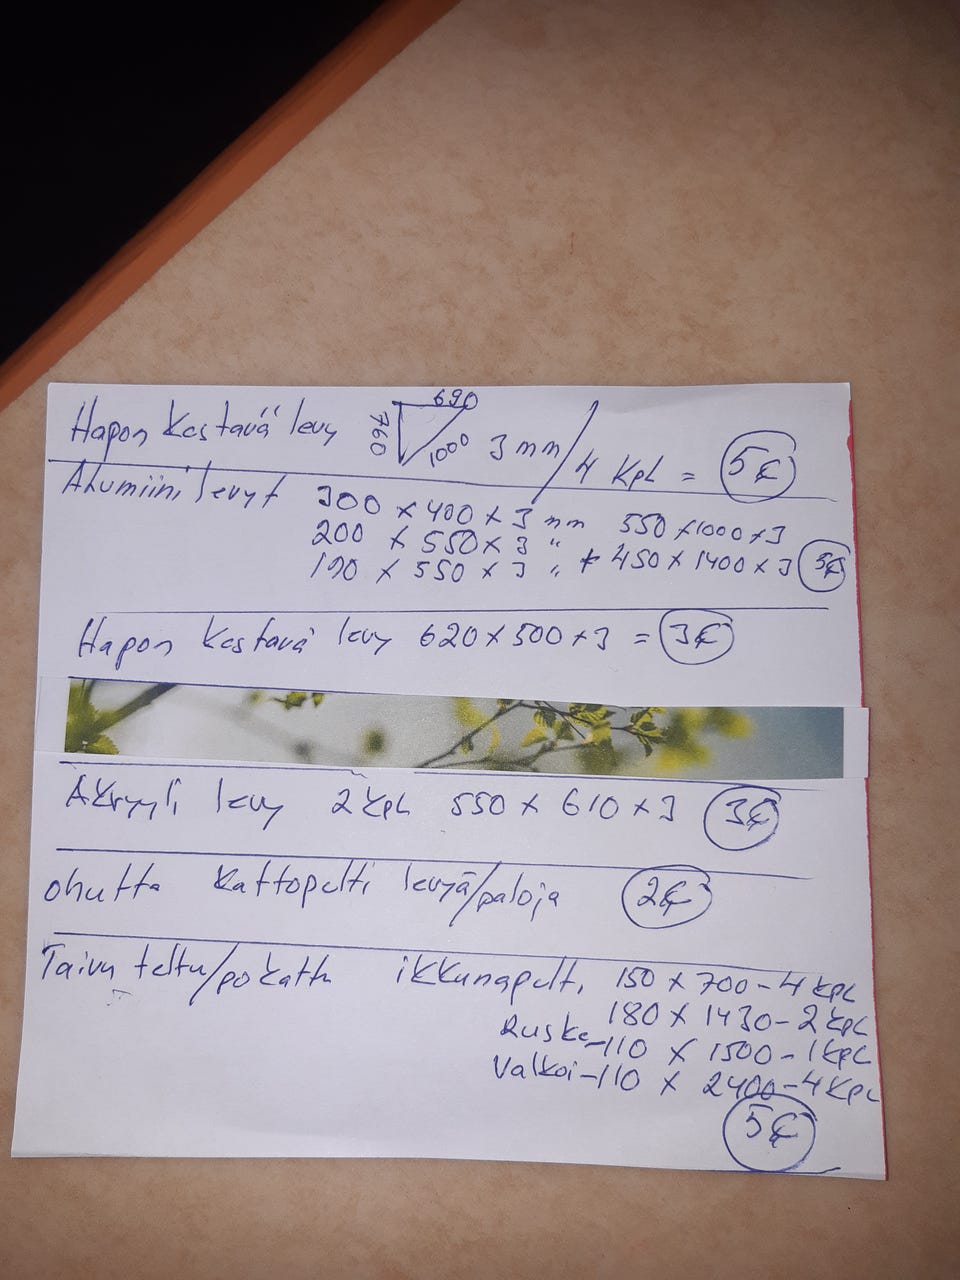 690
Hapon Kestävä levy 760 1000 3 mm / 4 Kpl = 5€
Alumiini levyt 300 x 400 x 3 mm 550 x 1000 x 3
200 x 550 x 3 " 450 x 1400 x 3 3€
190 x 550 x 3 "
Hapon Kestävä levy 620 x 500 x 3 = 3€
Akryyli levy 2 kpl 550 x 610 x 3 3€
ohutta Kattopelti levyä/paloja 2€
Taivuteltu/pokattu ikkunapelti 150 x 700 - 4 kpl
180 x 1430 - 2 kpl
Ruskea - 110 x 1500 - 1 kpl
Valkoi - 110 x 2400 - 4 kpl
5€